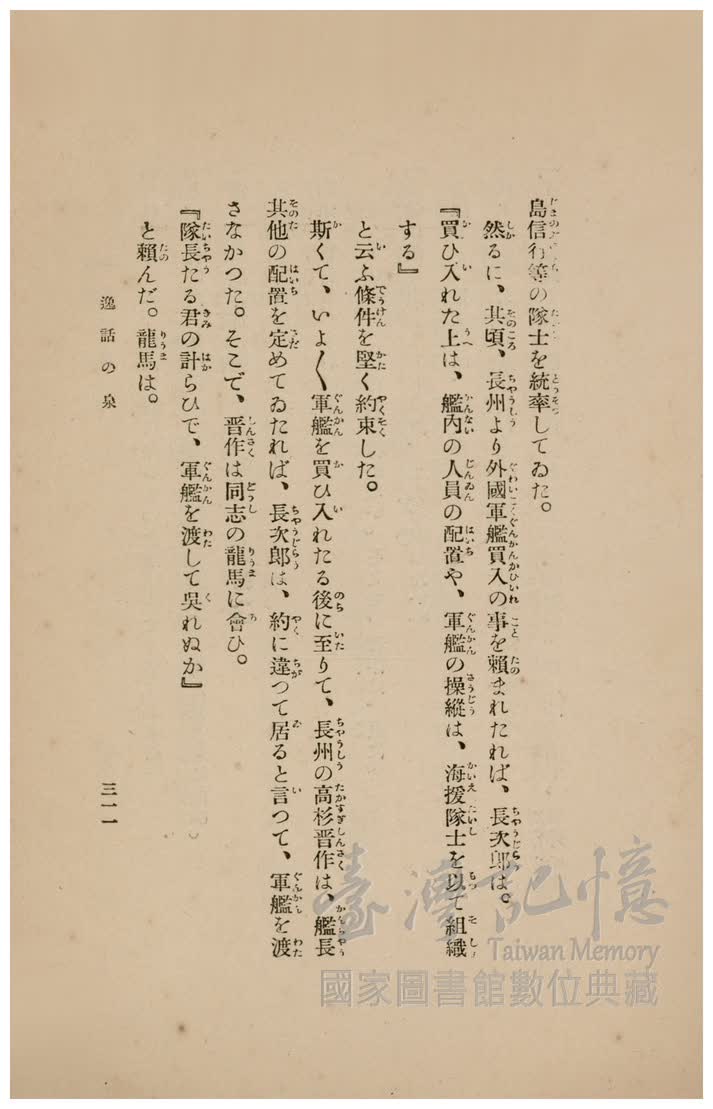 島信行等の隊士を統率してゐた。
然るに、其頃、長州より外國軍艦買入の事を賴まれたれば、長次郎は。
『買ひ入れた上は、艦内の人員の配置や、軍艦の操縱は、海援隊士を以て組織
する』
と云ふ條件を堅く約束した。
斯くて、いよ〳〵軍艦を買ひ入れたる後に至りて、長州の高杉晋作は、艦長
其他の配置を定めてゐたれば、長次郎は、約に違つて居ると言つて、軍艦を渡
さなかつた。そこで、晋作は同志の龍馬に會ひ。
『隊長たる君の計らひで、軍艦を渡して吳れぬか』
と賴んだ。龍馬は。
逸話の泉
三一一
臺灣記憶
Taiwan Memory
國家圖書館數位典藏